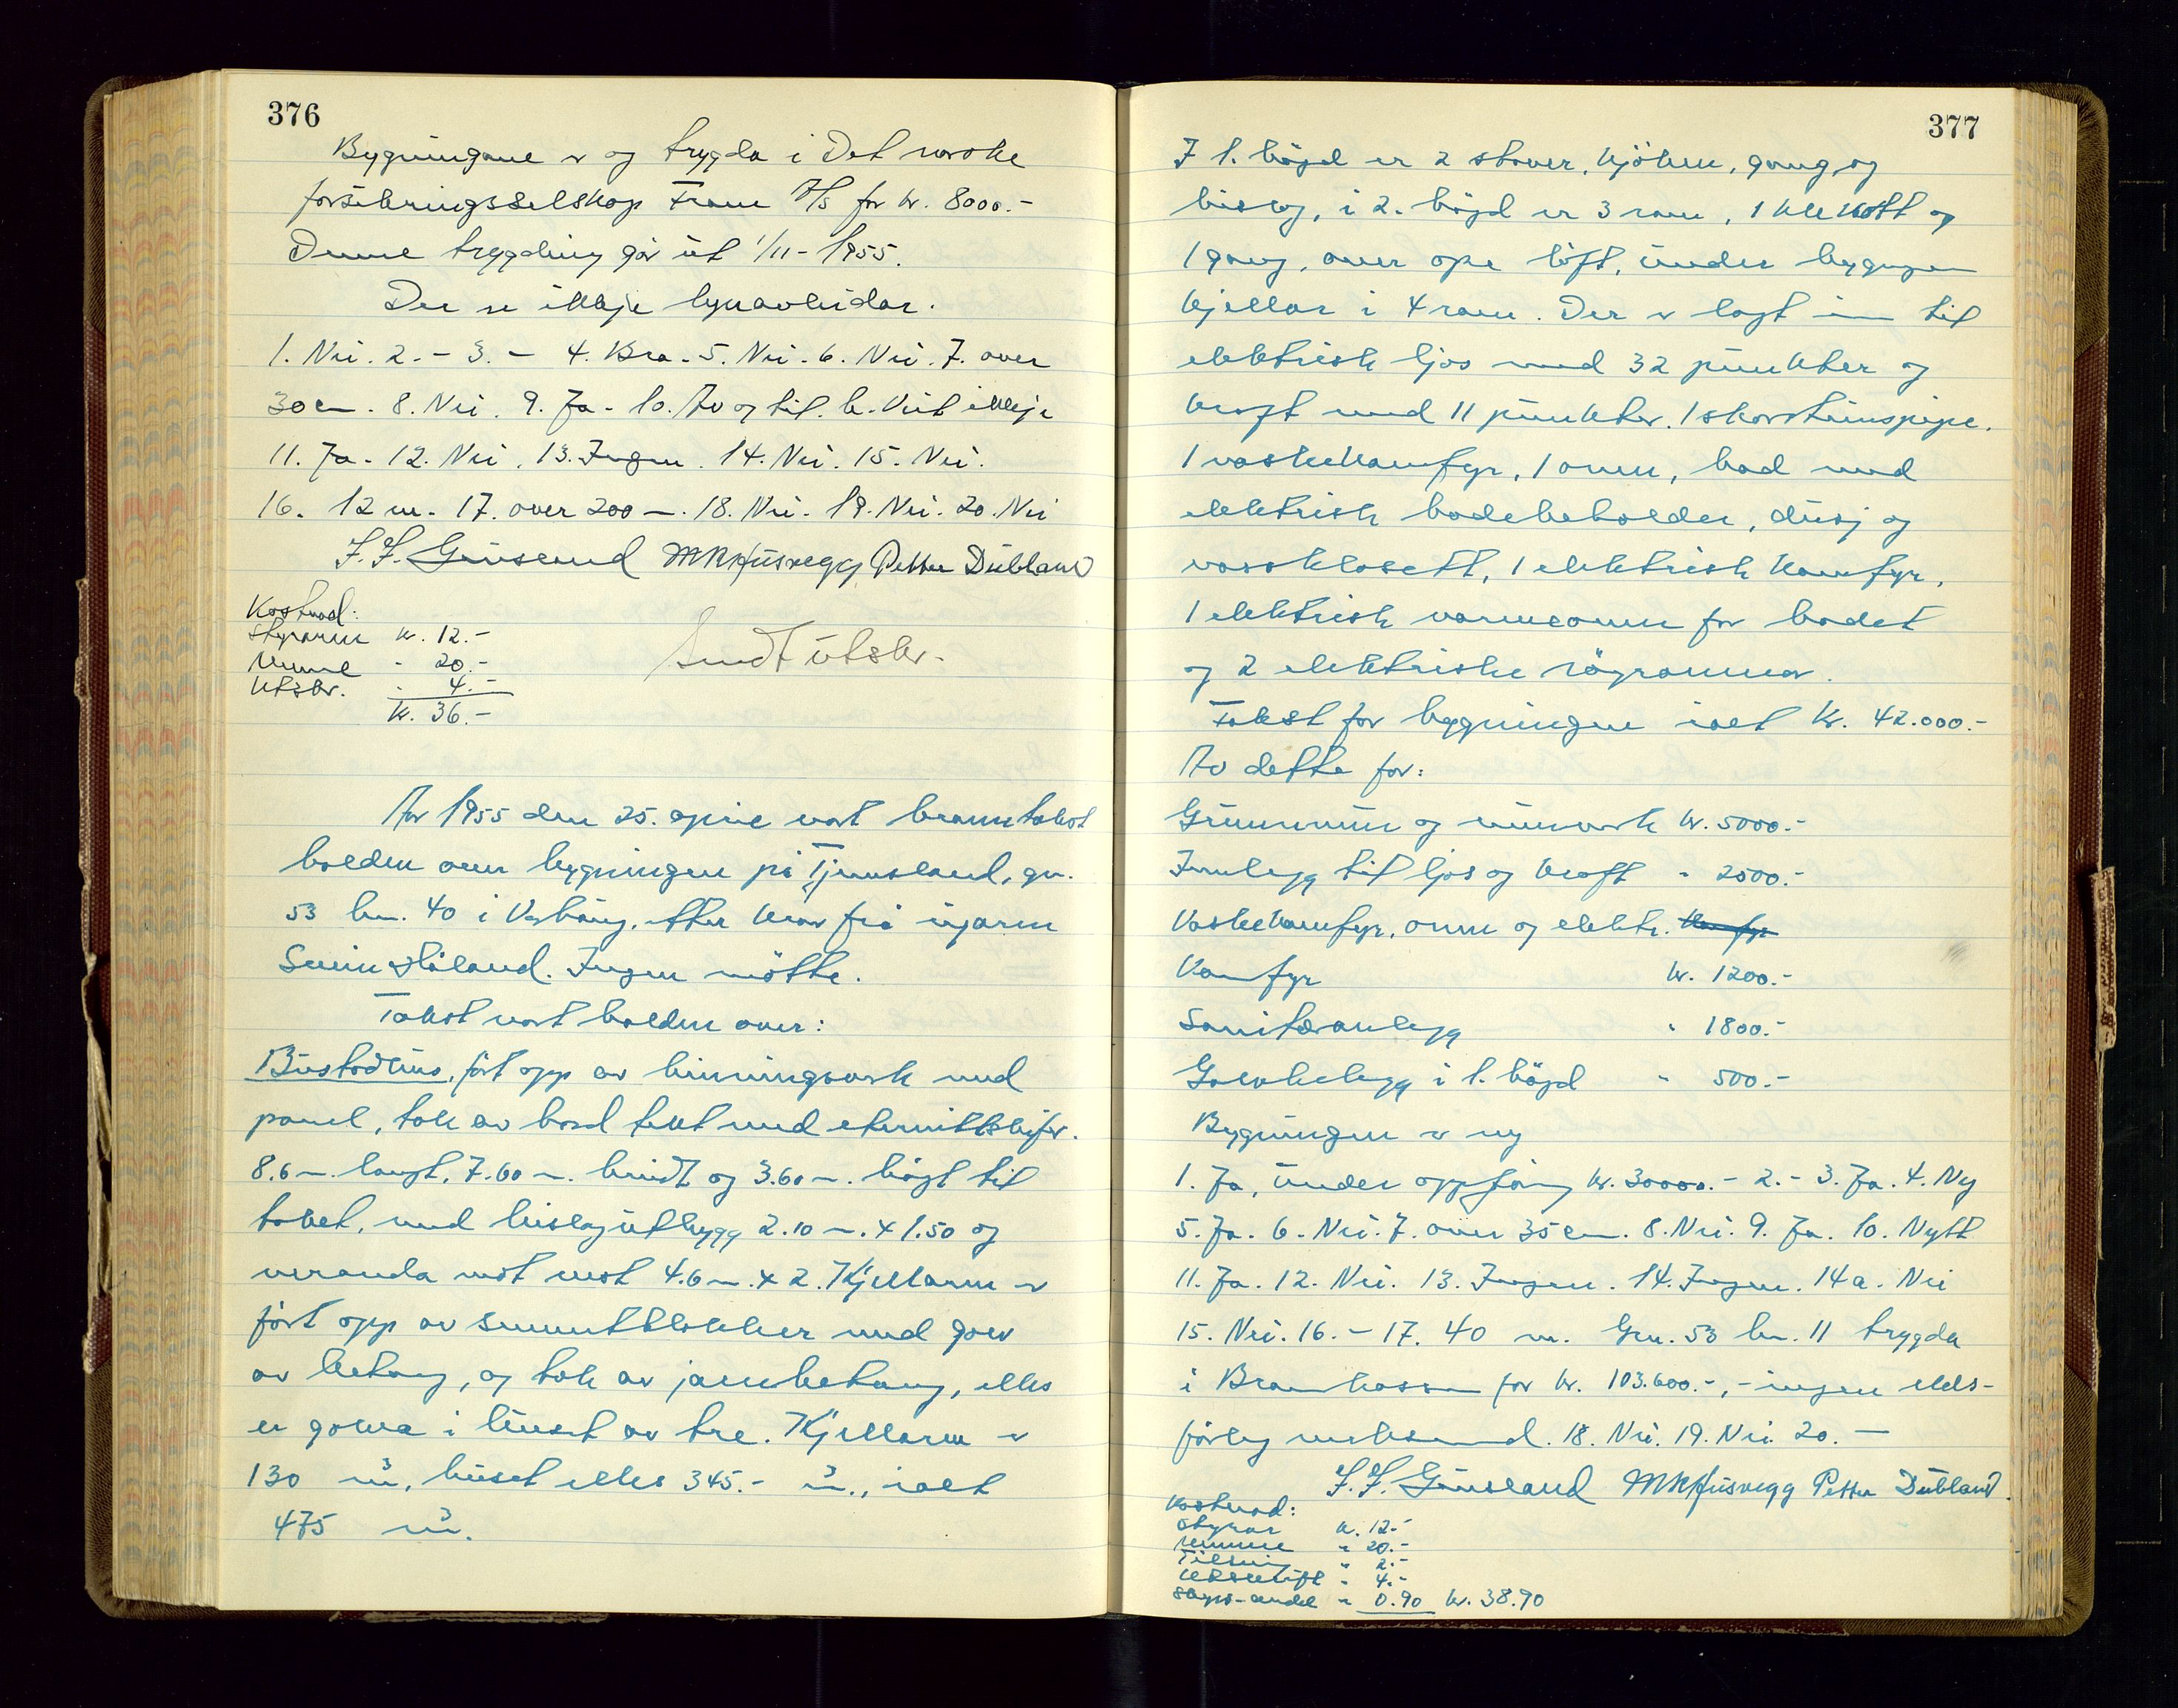 376
Bygningane er og trygda i Det norske
forsikringsselskap Fram A/S for kr. 8000.-
Denne trygding går ut 1/11-1955.
Der er ikkje lynavleidar.
1. Nei. 2. - 3. - 4. Bra. 5. Nei. 6. Nei. 7. over
30 cm. 8. Nei. 9. Ja. 10. Av og til. b. Veit ikkje
11. Ja. 12. Nei. 13. Ingen. 14. Nei. 15. Nei.
16. 12 m. 17. over 200 m. 18. Nei. 19. Nei. 20. Nei
Petter Dubland
Kostnad:
Styraren kr. 12.-
Menne " 20.-
Utskr. " 4.-
kr. 36.-
Sendt utskr.
År 1955 den 25. april vart branntakst
halden over bygningen på Tjemsland, gn.
53 bn. 40 i Varhaug, etter krav frå eigaren
Svein Håland. Ingen møtte.
Takst vart halden over:
Bustadhus, ført opp av bindingsverk med
panel, tak av bord tekt med eternittskifer.
8.6 m. langt, 7.60 m. breidt og 3.60 m. høgt til
taket, med bislagutbygg 2.10 m. x 1.50 og
veranda mot vest 4.6 m. x 2. Kjellaren er
ført opp av sementblokker med golv
av betong, og tak av jarnbetong, elles
er golva i huset av tre. Kjellaren er
130 m³, huset elles 345.- m³., ialt
475 m³.
377
I 1. høgd er 2 stover, kjøken, gang og
bislag, i 2. høgd er 3 rom, 1 klekott og
1 gang, over ope loft, under bygningen
kjellar i 4 rom. Der er lagt inn til
elektrisk ljos med 32 punkter og
kraft med 11 punkter. 1 skorsteinspipe.
1 vaskekomfyr, 1 omn, bad med
elektrisk badebeholder, dusj og
vassklosett, 1 elektrisk komfyr,
1 elektrisk varmeomn for badet
og 2 elektriske røyromnar.
Takst for bygningen ialt kr. 42.000.-
Av dette for:
Grunnmur og murverk kr. 5000.-
Innlegg til ljos og kraft " 2500.-
Vaskekomfyr, omn og elektr. Komfyr
Komfyr kr. 1200.-
Sanitæranlegg " 1800.-
Golvbelegg i 1. høgd " 500.-
Bygningen er ny
1. Ja, under oppføring kr. 30000.- 2. - 3. Ja. 4. Ny
5. Ja. 6. Nei. 7. over 35 cm. 8. Nei. 9. Ja. 10. Nytt
11. Ja. 12. Nei. 13. Ingen. 14. Ingen. 14a. Nei
15. Nei. 16. - 17. 40 m. Gn. 53 bn. 11 trygda
i Brannkassen for kr. 103.600.-, - ingen elds-
fårleg verksemd. 18. Nei. 19. Nei. 20. -
Petter Dubland.
Kostnad:
Styrar kr. 12.-
Menne " 20.-
Tilsein " 2.-
Utskrift " 4.-
" 0.90 kr. 38.90